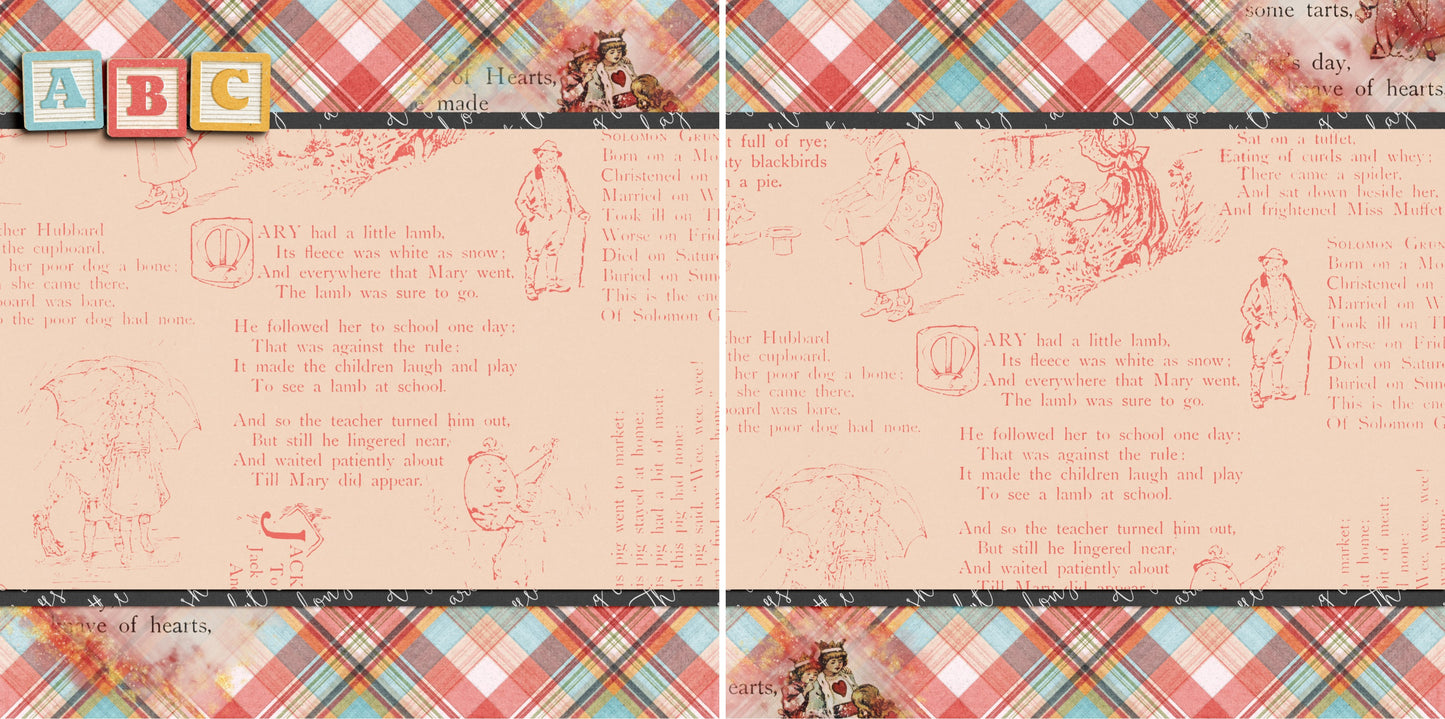 A B C
of Hearts,
made
SOLOMON GRUN
Born on a Mo
Christened on
Married on W
Took ill on Th
Worse on Frid
Died on Satur
Buried on Sun
This is the end
Of Solomon G
ther Hubbard
the cupboard,
her poor dog a bone;
she came there,
board was bare,
the poor dog had none.
ARY had a little lamb,
Its fleece was white as snow;
And everywhere that Mary went,
The lamb was sure to go.
He followed her to school one day;
That was against the rule;
It made the children laugh and play
To see a lamb at school.
And so the teacher turned him out,
But still he lingered near,
And waited patiently about
Till Mary did appear.
JACK
To
Jack
An
is pig went to market;
is pig stayed at home;
is pig had a bit of meat;
d this pig had none;
is pig said, "Wee, wee, wee!
knave of hearts,
some tarts,
day,
knave of hearts
t full of rye;
ty blackbirds
n a pie.
Sat on a tuffet,
Eating of curds and whey;
There came a spider,
And sat down beside her,
And frightened Miss Muffet
SOLOMON GRUN
Born on a Mo
Christened on
Married on W
Took ill on Th
Worse on Frid
Died on Satur
Buried on Sun
This is the end
Of Solomon G
ther Hubbard
the cupboard,
her poor dog a bone;
she came there,
board was bare,
the poor dog had none.
ARY had a little lamb,
Its fleece was white as snow;
And everywhere that Mary went,
The lamb was sure to go.
He followed her to school one day;
That was against the rule;
It made the children laugh and play
To see a lamb at school.
And so the teacher turned him out,
But still he lingered near,
And waited patiently about
Till Mary did appear
market;
at home;
bit of meat;
none;
Wee, wee, wee!
earts,